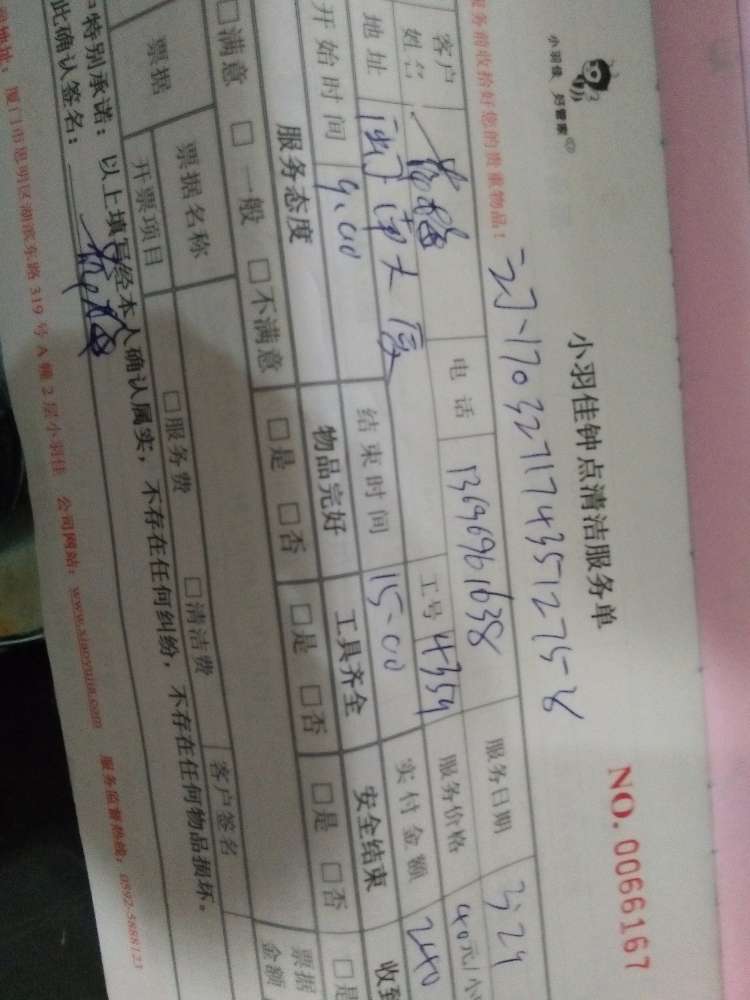 小羽佳 好管家
小羽佳钟点清洁服务单
NO. 0066167
服务前收拾好您的贵重物品!
客户姓名
电话
13696961638
服务日期
3.29
地址
大厦
工号
4359
服务价格
40元/小
开始时间
9.00
结束时间
15.00
实付金额
240
服务态度
物品完好
工具齐全
安全结束
收到
□满意 □一般 □不满意
□是 □否
□是 □否
□是 □否
□是
票据
票据名称
□服务费
□清洁费
客户签名
票据金额
开票项目
特别承诺:以上填写经本人确认属实,不存在任何纠纷,不存在任何物品损坏。
此确认签名:
地址:厦门市思明区湖滨东路 319 号 A 幢 2 层小羽佳 公司网站:www.xiaoyujia.com 服务监督热线:0592-5888123